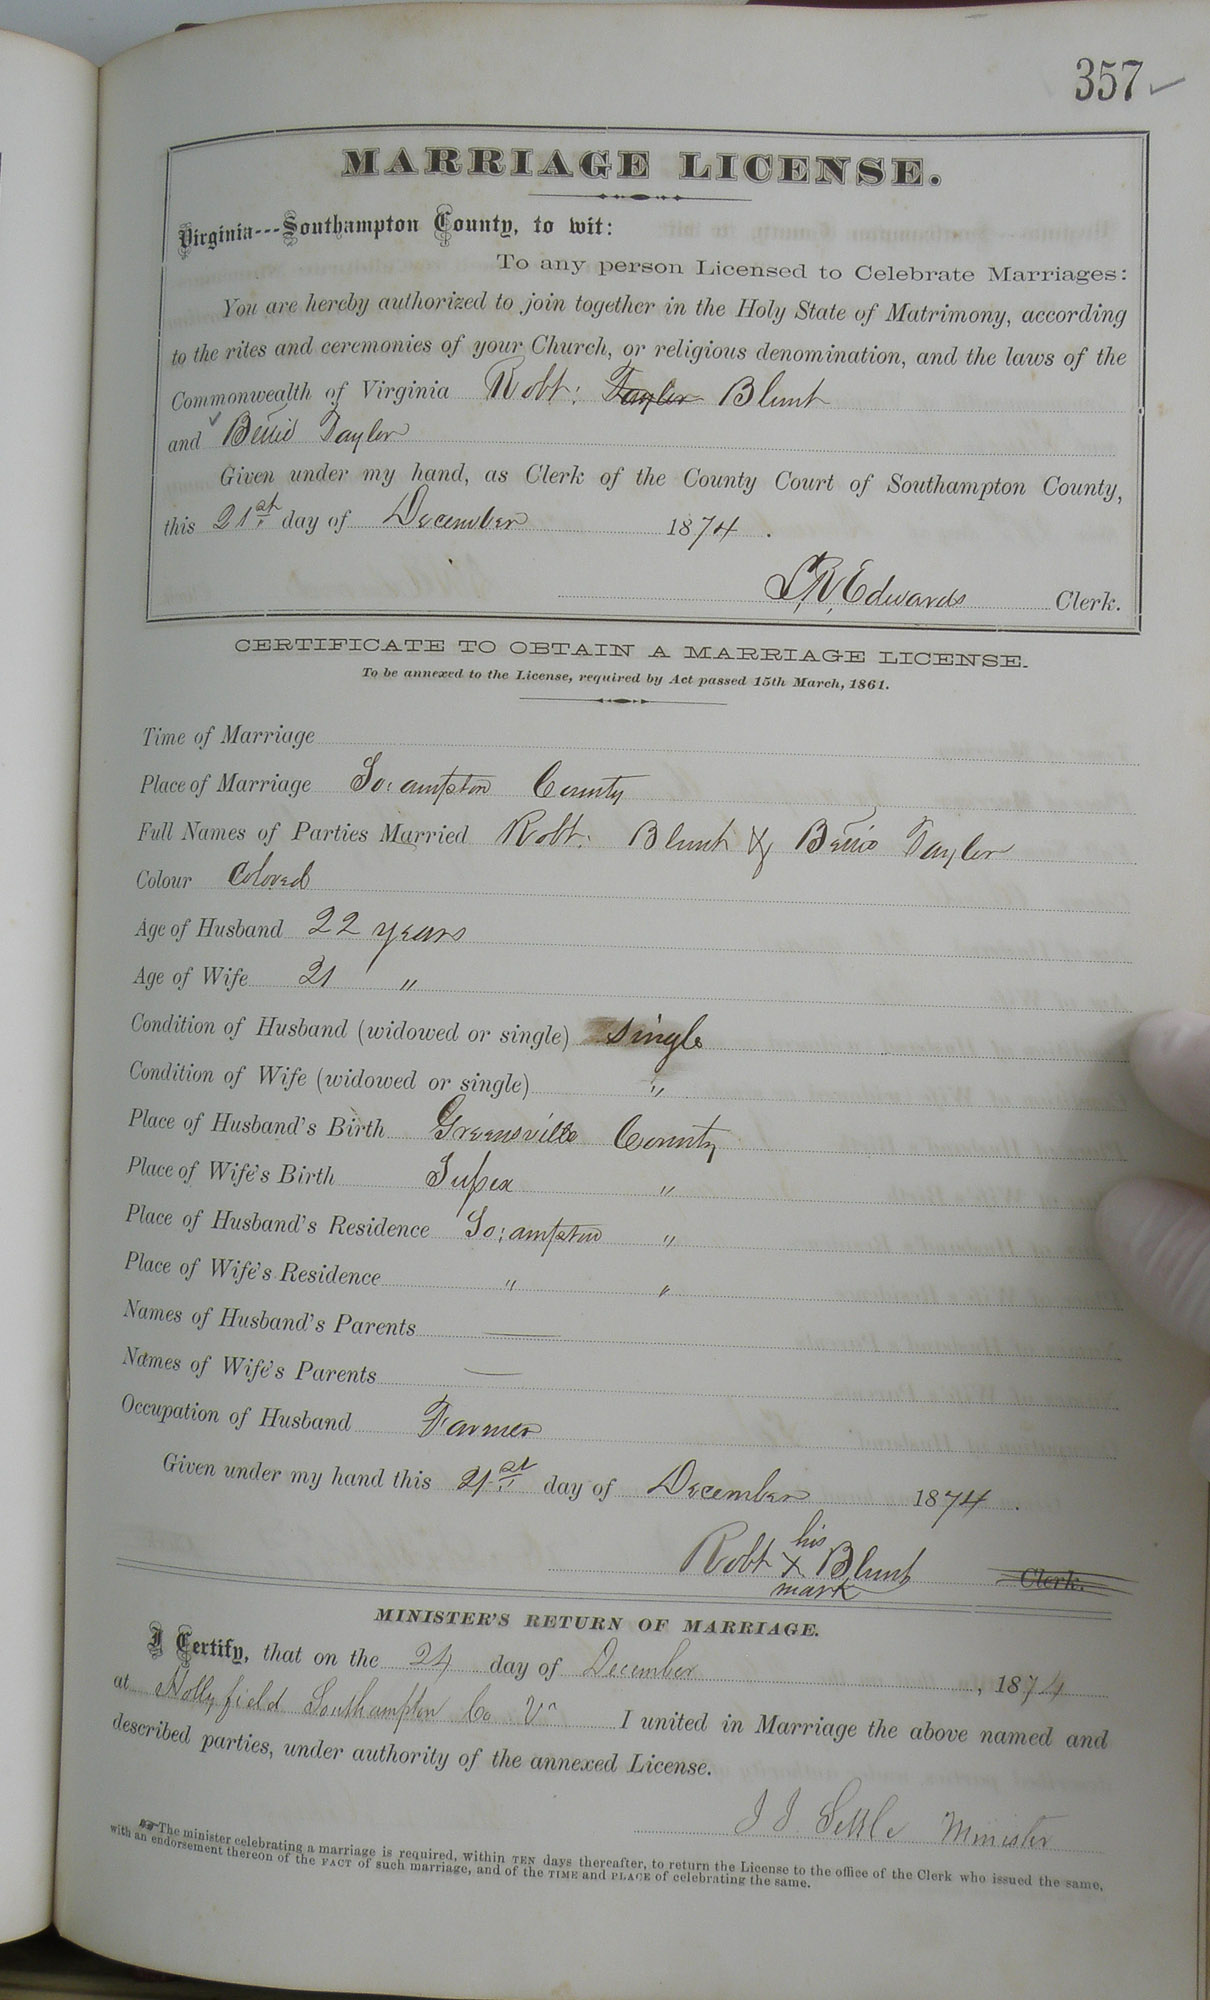 357
MARRIAGE LICENSE.
Virginia---Southampton County, to wit:
To any person Licensed to Celebrate Marriages:
You are hereby authorized to join together in the Holy State of Matrimony, according
to the rites and ceremonies of your Church, or religious denomination, and the laws of the
Commonwealth of Virginia Robt: Taylor Blunt
and Taylor
Given under my hand, as Clerk of the County Court of Southampton County,
this 21st day of December 1874.
Edwards Clerk.
CERTIFICATE TO OBTAIN A MARRIAGE LICENSE.
To be annexed to the License, required by Act passed 15th March, 1861.
Time of Marriage
Place of Marriage So:ampton County
Full Names of Parties Married Robt: Blunt & Taylor
Colour Colored
Age of Husband 22 years
Age of Wife 21 "
Condition of Husband (widowed or single) single
Condition of Wife (widowed or single) "
Place of Husband's Birth Greensville County
Place of Wife's Birth Sussex "
Place of Husband's Residence So:ampton "
Place of Wife's Residence " "
Names of Husband's Parents —
Names of Wife's Parents —
Occupation of Husband Farmer
Given under my hand this 21st day of December 1874.
his
Robt X Blunt Clerk.
mark
MINISTER'S RETURN OF MARRIAGE.
I Certify, that on the 24 day of December, 1874
at Hollyfield Southampton Co Va I united in Marriage the above named and
described parties, under authority of the annexed License.
J J Settle Minister
The minister celebrating a marriage is required, within TEN days thereafter, to return the License to the office of the Clerk who issued the same,
with an endorsement thereon of the FACT of such marriage, and of the TIME and PLACE of celebrating the same.